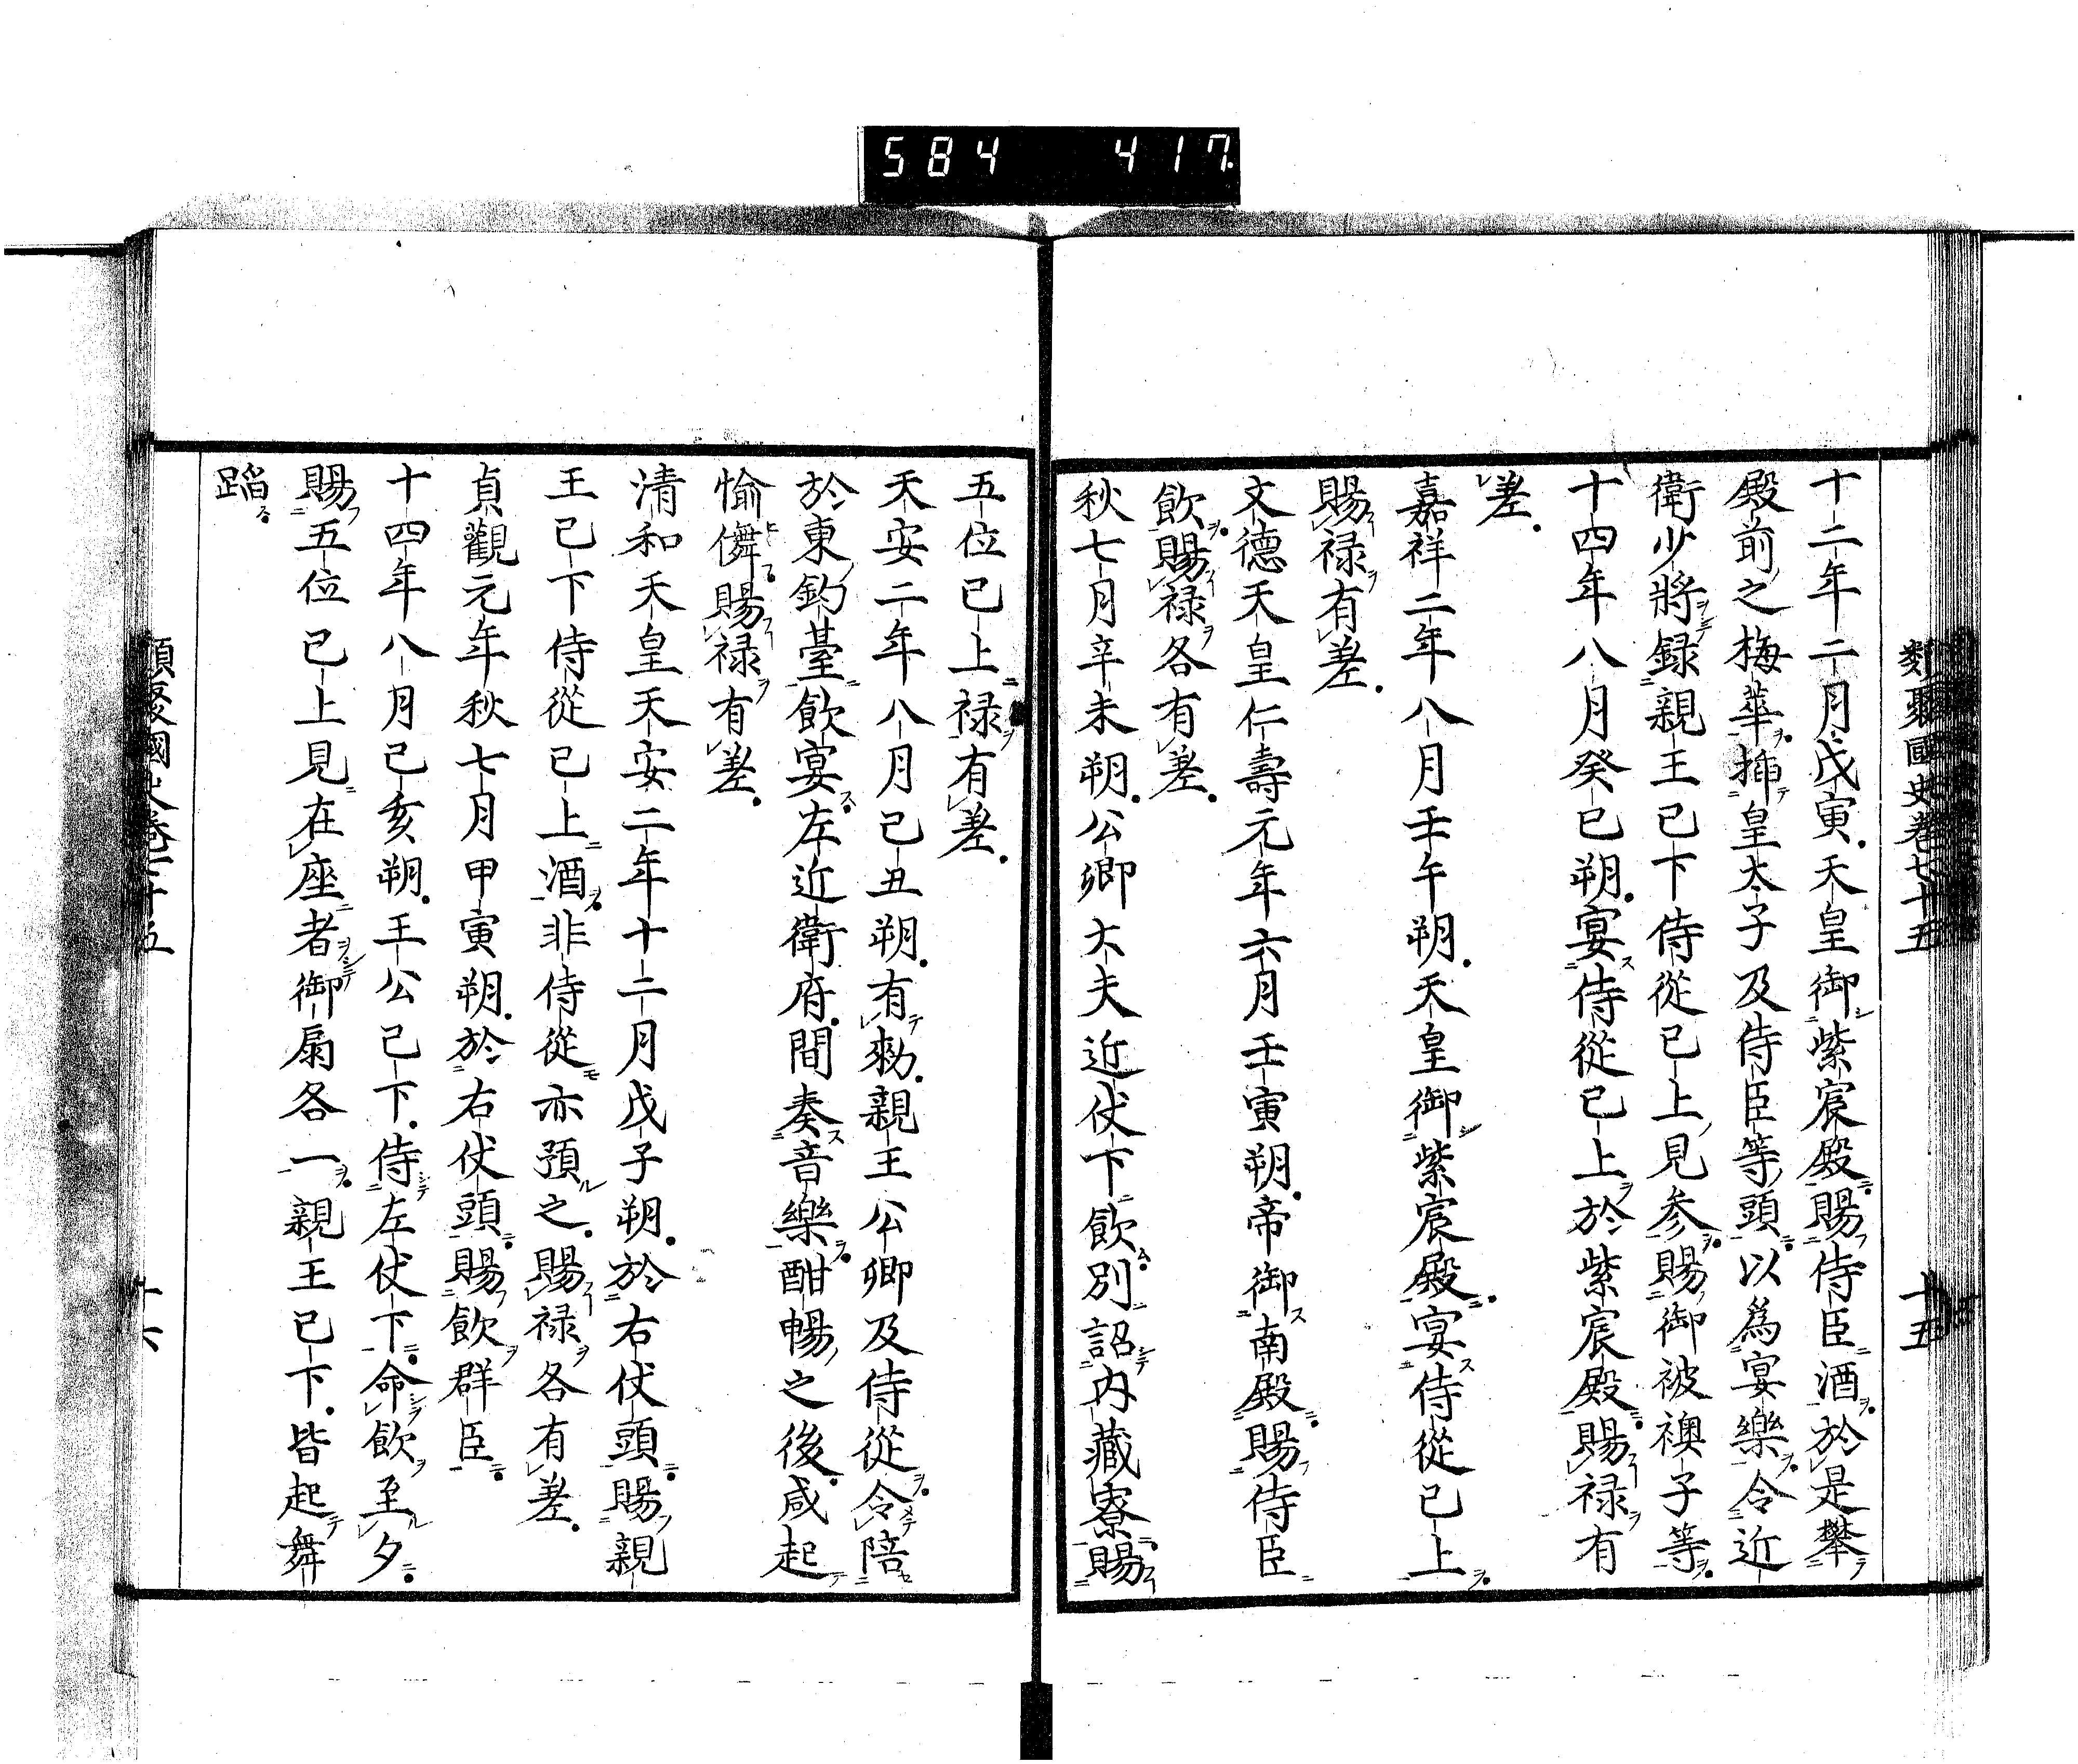 584 417
類聚國史卷七十五
十五
十二年二月戊寅天皇御紫宸殿賜侍臣酒於是攀
殿前之梅華插皇太子及侍臣等頭以爲宴樂令近
衛少將録親王已下侍從已上見参賜御被襖子等
十四年八月癸巳朔宴侍從已上於紫宸殿賜禄有
差
嘉祥二年八月壬午朔天皇御紫宸殿宴侍從已上
賜禄有差
文德天皇仁壽元年六月壬寅朔帝御南殿賜侍臣
飲賜禄各有差
秋七月辛未朔公卿大夫近仗下飲別詔内藏寮賜
五位已上禄有差
天安二年八月己丑朔有勑親王公卿及侍從令陪
於東釣臺飲宴左近衛府間奏音樂酣暢之後咸起
愉儛賜禄有差
清和天皇天安二年十二月戊子朔於右仗頭賜親
王已下侍從已上酒非侍從亦預之賜禄各有差
貞觀元年秋七月甲寅朔於右仗頭賜飲群臣
十四年八月己亥朔王公已下侍左仗下命飲至夕
賜五位已上見在座者御扇各一親王已下皆起舞
蹈
類聚國史卷七十五
十六